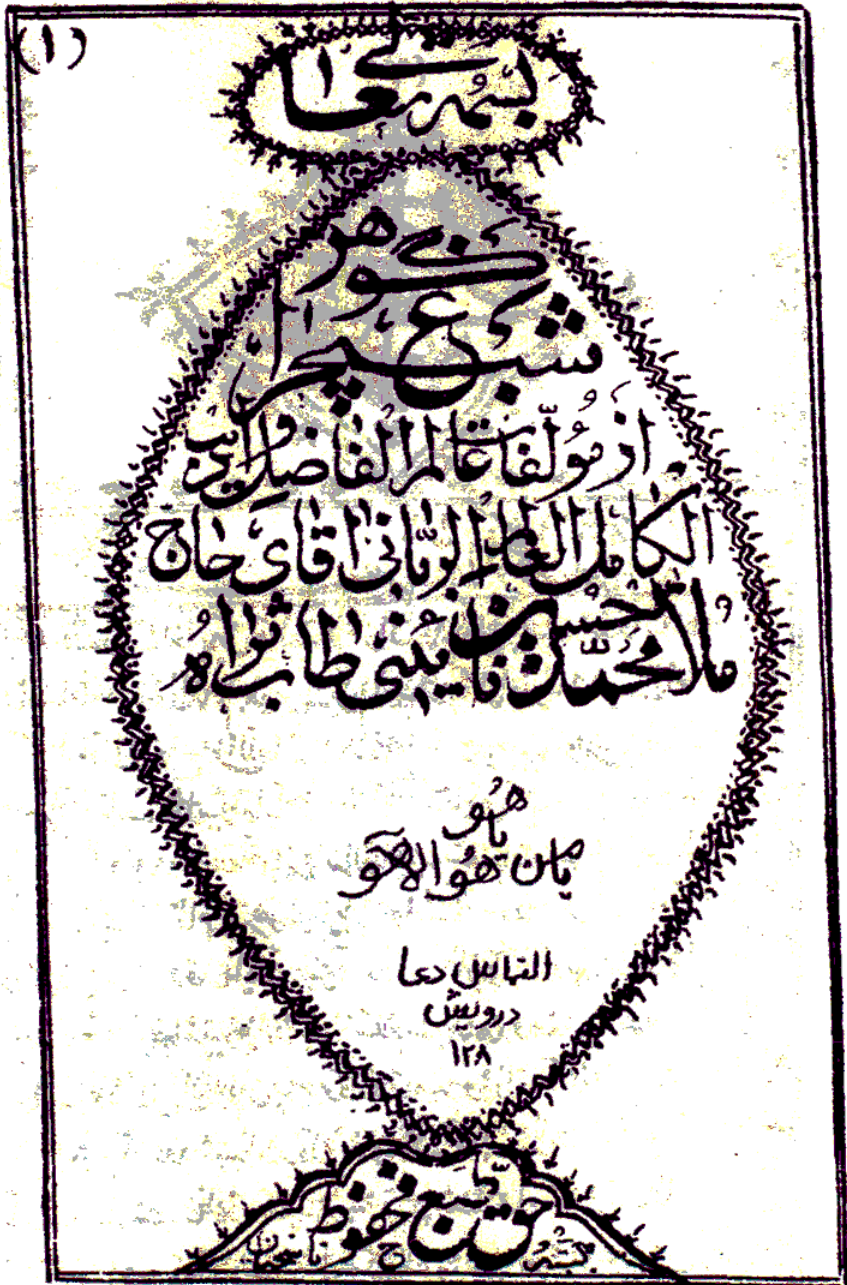 (۱)
بسمه تعالی
گوهر
شب چراغ
از مؤلّفات عالم الفاضل و ادیب
الکامل العالم الربّانی اقای حاج
ملا محمّد حسن نایینی طاب ثراه
هو
یاهو
یامن هو الاهو
التماس دعا
درویش
۱۲۸
حق طبع محفوظ